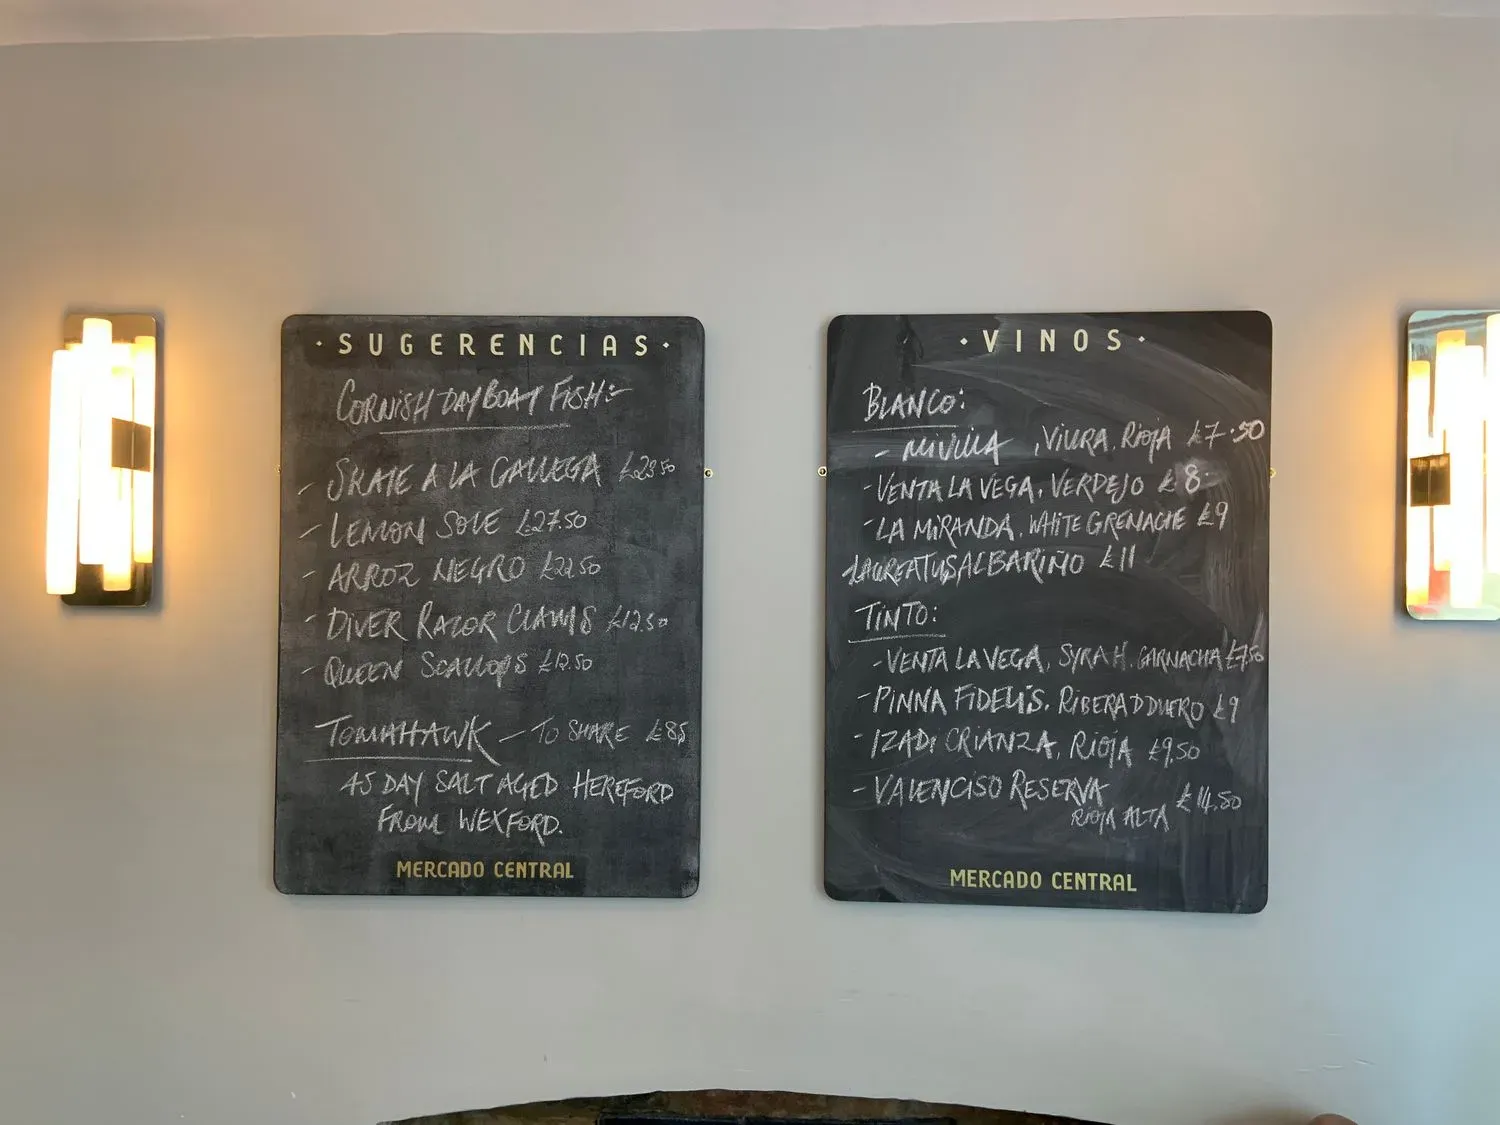 · SUGERENCIAS ·
CORNISH DAYBOAT FISH:-
- SKATE A LA GALLEGA £23.50
- LEMON SOLE £27.50
- ARROZ NEGRO £22.50
- DIVER RAZOR CLAMS £12.50
- QUEEN SCALLOPS £12.50
TOMAHAWK - TO SHARE £85
45 DAY SALT AGED HEREFORD
FROM WEXFORD.
MERCADO CENTRAL
· VINOS ·
BLANCO:
- , VIURA, RIOJA £7.50
- VENTA LA VEGA, VERDEJO £8
- LA MIRANDA, WHITE GRENACHE £9
- LAUREATUS ALBARIÑO £11
TINTO:
- VENTA LA VEGA, SYRAH, GARNACHA £7.50
- PINNA FIDELIS, RIBERA D DUERO £9
- IZADI CRIANZA, RIOJA £9.50
- VALENCISO RESERVA £14.50
RIOJA ALTA
MERCADO CENTRAL